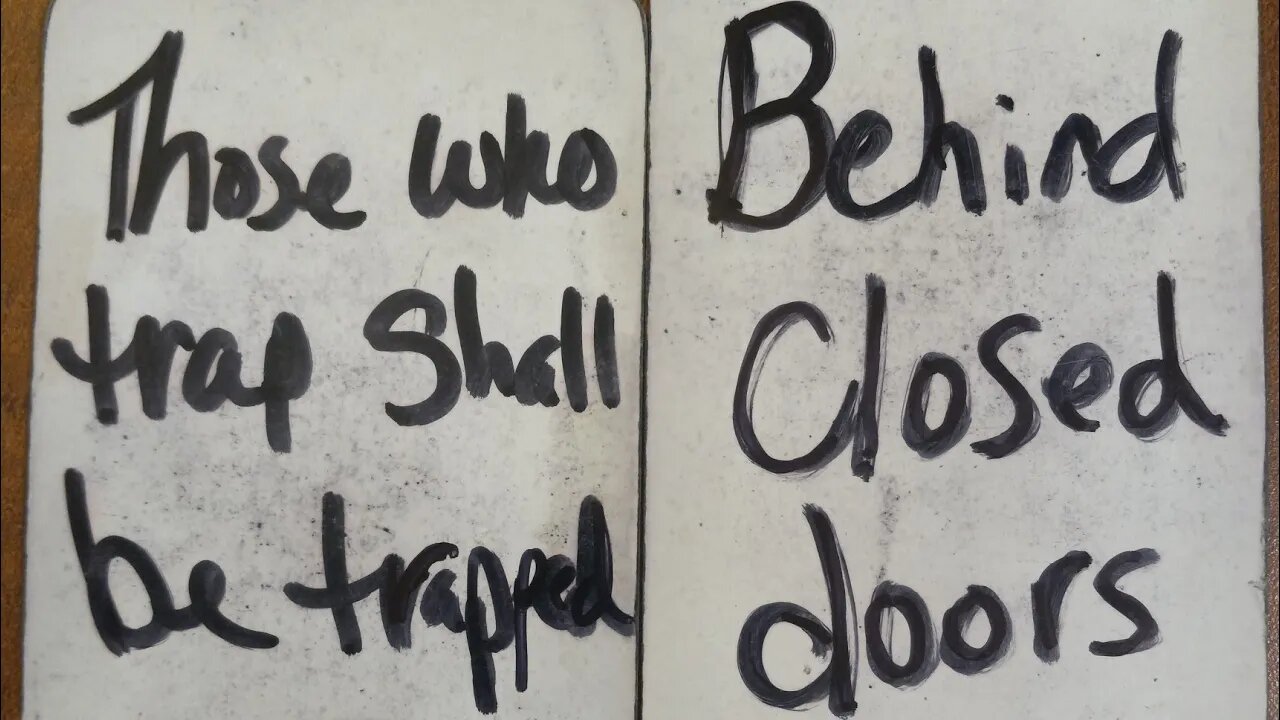 Those who
trap Shall
be trapped
Behind
Closed
doors